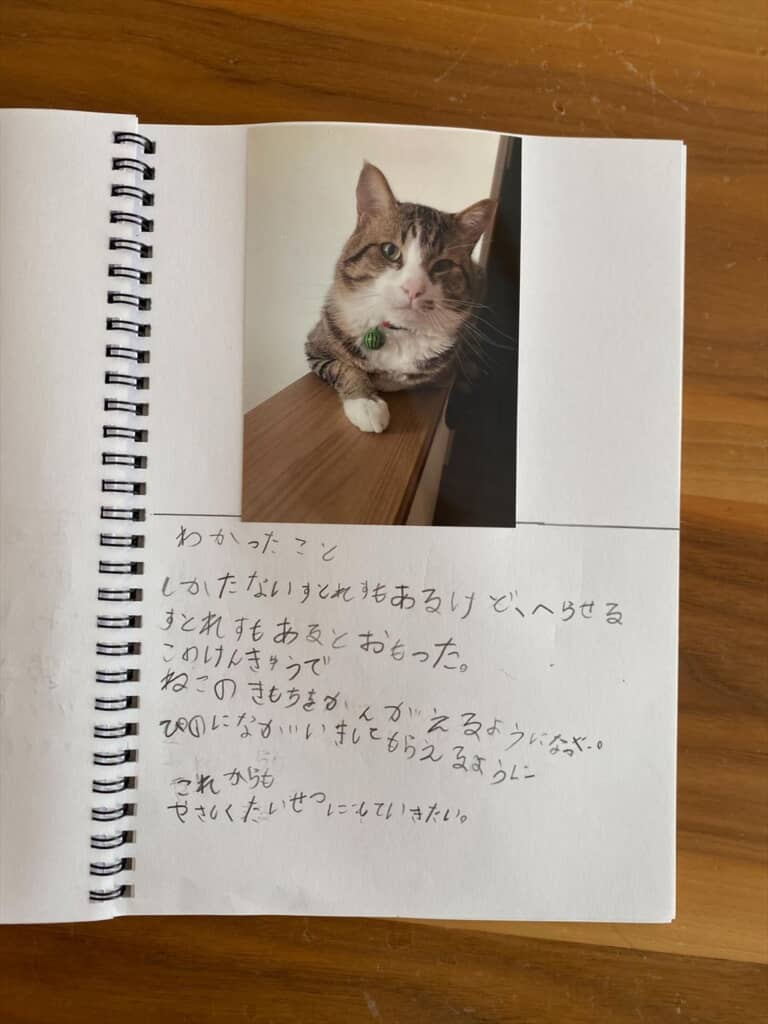 わかったこと
しかたないすとれすもあるけど、へらせる
すとれすもあるとおもった。
このけんきゅうで
ねこのきもちをかんがえるようになった。
ぴのにながいきしてもらえるように
これからも
やさしくたいせつにしていきたい。